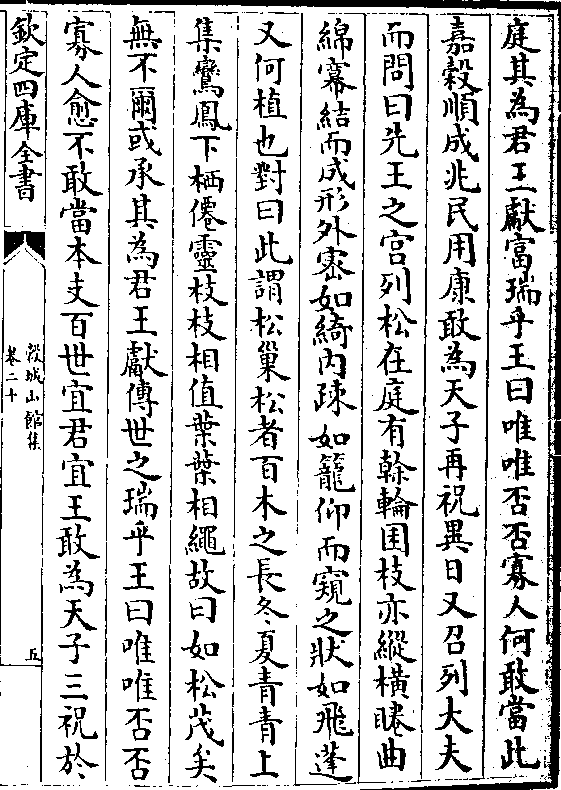 庭其為君王獻富瑞乎王曰唯唯否否寡人何敢當此
嘉穀順成兆民用康敢為天子再祝異日又召列大夫
而問曰先王之宫列松在庭有榦輪囷枝亦縱横睠曲
綿羃結而成形外密如綺内疎如籠仰而窺之狀如飛蓬
又何植也對曰此謂松巢松者百木之長冬夏青青上
集鸞鳳下栖僊靈枝枝相值葉葉相繩故曰如松茂矣
無不爾或承其為君王獻傳世之瑞乎王曰唯唯否否
寡人愈不敢當本支百世宜君宜王敢為天子三祝於
欽定四庫全書
穀城山館集
卷二十
五